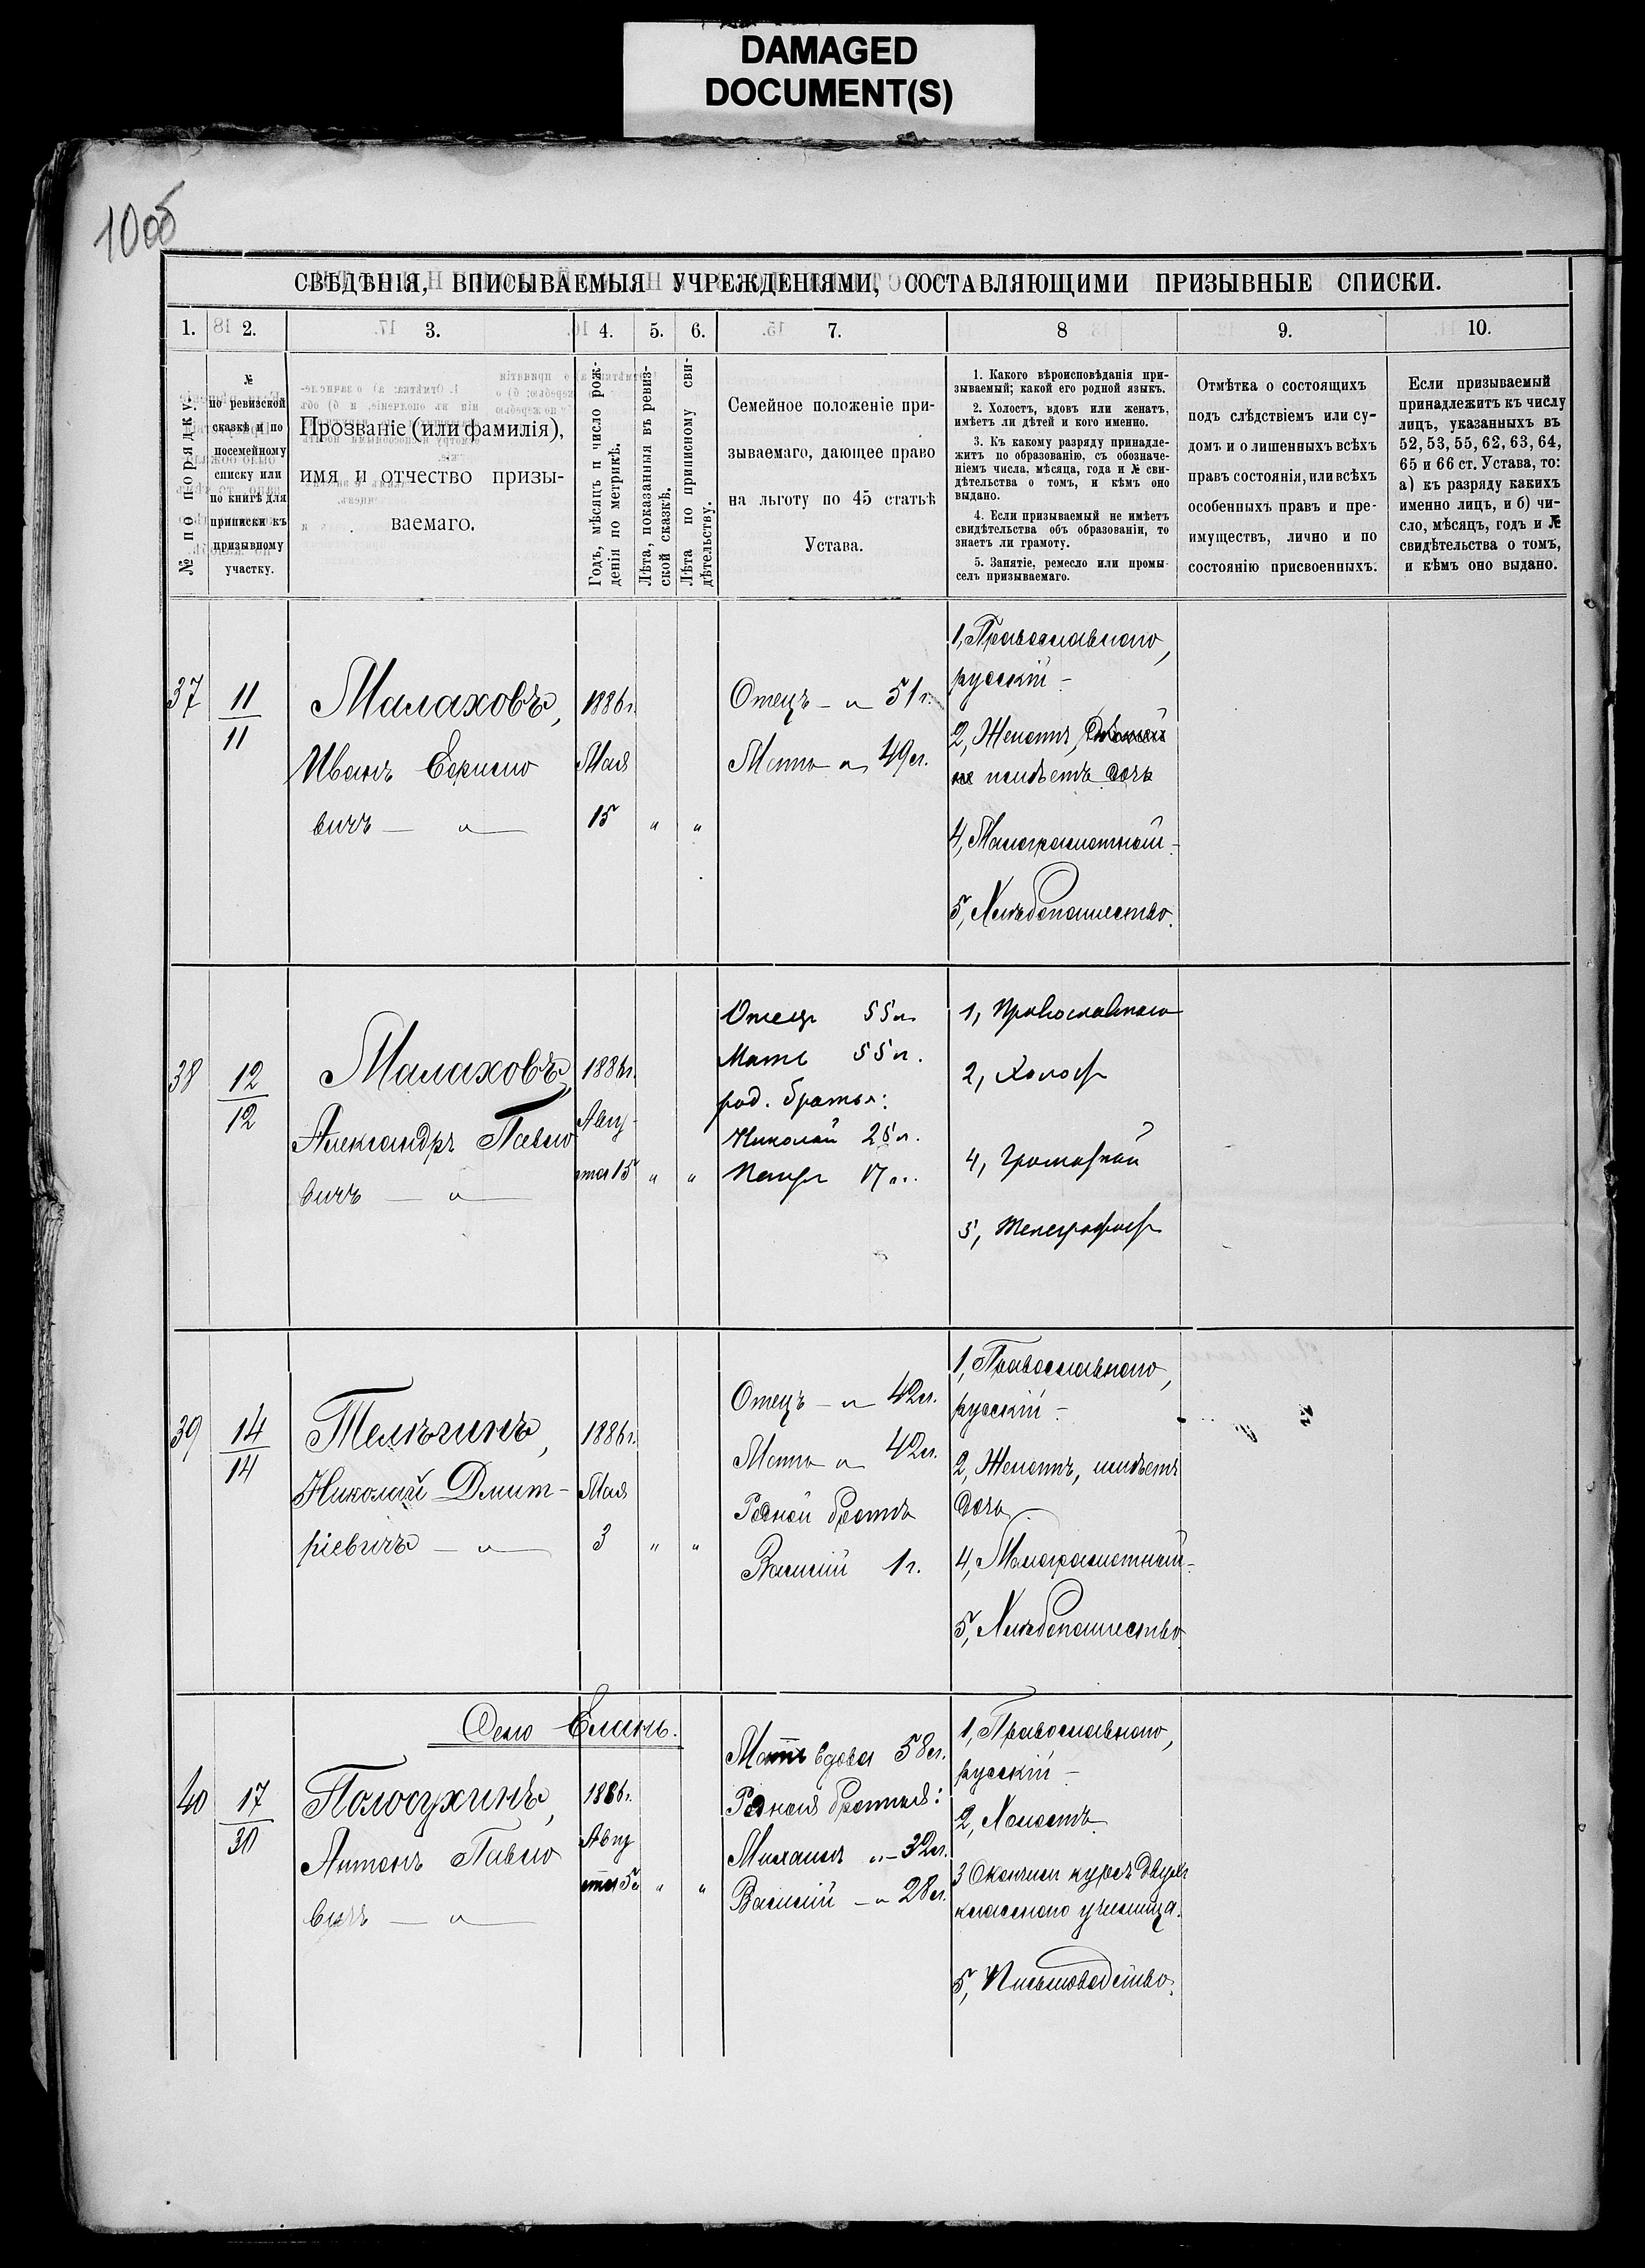 DAMAGED
DOCUMENT(S)
10об
СВѢДѢНІЯ, ВПИСЫВАЕМЫЯ УЧРЕЖДЕНІЯМИ, СОСТАВЛЯЮЩИМИ ПРИЗЫВНЫЕ СПИСКИ.
1. 2. 3. 4. 5. 6. 7. 8 9. 10.
№ по порядку.
№
по ревизской
сказкѣ и по
посемейному
списку или
по книгѣ для
приписки къ
призывному
участку.
Прозваніе (или фамилія),
имя и отчество призы-
ваемаго.
Годъ, мѣсяцъ и число рож-
денія по метрикѣ.
Лѣта, показанныя въ ревиз-
ской сказкѣ.
Лѣта по приписному сви-
дѣтельству.
Семейное положеніе при-
зываемаго, дающее право
на льготу по 45 статьѣ
Устава.
1. Какого вѣроисповѣданія при-
зываемый; какой его родной языкъ.
2. Холостъ, вдовъ или женатъ,
имѣетъ ли дѣтей и кого именно.
3. Къ какому разряду принадле-
житъ по образованію, съ обозначе-
ніемъ числа, мѣсяца, года и № сви-
дѣтельства о томъ, и кѣмъ оно
выдано.
4. Если призываемый не имѣетъ
свидѣтельства объ образованіи, то
знаетъ ли грамоту.
5. Занятіе, ремесло или промы-
селъ призываемаго.
Отмѣтка о состоящихъ
подъ слѣдствіемъ или су-
домъ и о лишенныхъ всѣхъ
правъ состоянія, или всѣхъ
особенныхъ правъ и пре-
имуществъ, лично и по
состоянію присвоенныхъ.
Если призываемый
принадлежитъ къ числу
лицъ, указанныхъ въ
52, 53, 55, 62, 63, 64,
65 и 66 ст. Устава, то:
а) къ разряду какихъ
именно лицъ, и б) чи-
сло, мѣсяцъ, годъ и №
свидѣтельства о томъ,
и кѣмъ оно выдано.
37
11
11
Малаховъ,
Иванъ
вичъ — „ —
1886 г.
Мая
15
„ „
Отецъ — „ 51 г.
Мать „ 49 л.
1, Православнаго,
русскій —
2, Женатъ,
имѣетъ дочь
4, Малограмотный —
5, Хлѣбопашество.
38
12
12
Малаховъ,
Александръ Павло
вичъ — „ —
1886 г.
Авгу-
ста 15
„ „
Отецъ 55 л.
Мать 55 л.
род. братья:
Николай 25 л.
Петръ 17 л.
1, Православнаго
2, Холостъ
4, Грамотный
5, Телеграфистъ
39
14
14
Телѣгинъ,
Николай Дмит-
ріевичъ — „ —
1886 г.
Мая
3
„ „
Отецъ — „ 42 л.
Мать „ 42 л.
Родной братъ
Василій 1 г.
1, Православнаго,
русскій —
2, Женатъ, имѣетъ
дочь —
4, Малограмотный —
5, Хлѣбопашество.
Село Елань.
40
17
30
Полосухинъ,
Антонъ Павло
вичъ — „ —
1886 г.
Авгу
ста 5
„ „
Мать вдова 58 л.
Родныя братья:
Михаилъ „ — 32 л.
Василій — „ 28 л.
1, Православнаго,
русскій —
2, Холостъ.
3 Окончилъ курсъ двухъ
класснаго училища.
5, Письмоводство.